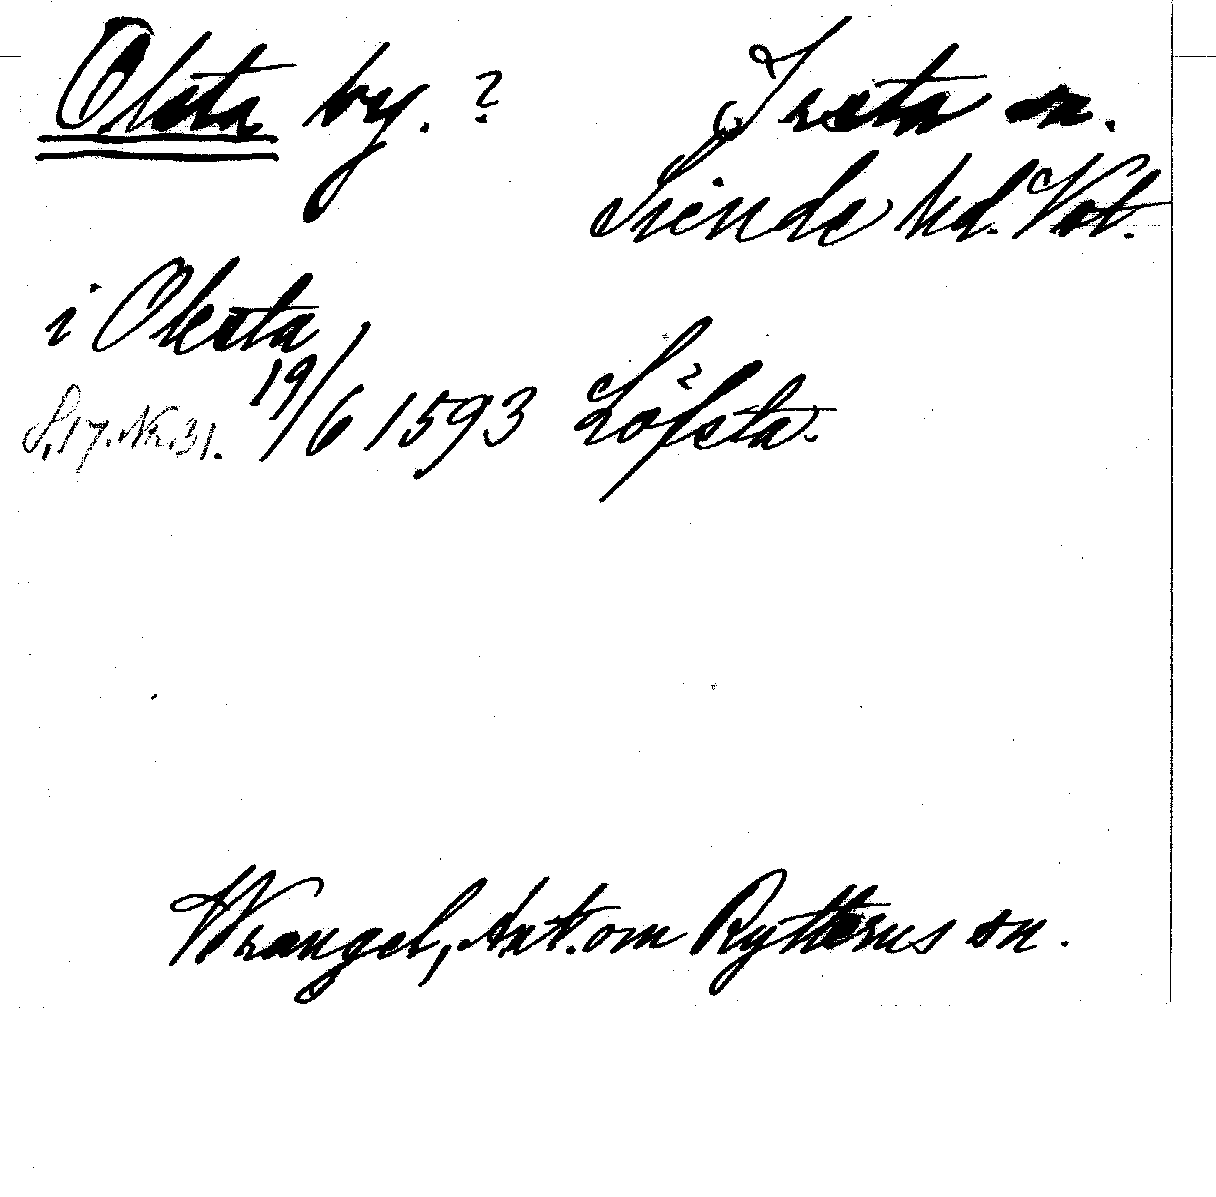 Olsta by. ? Irsta sn.
Siende hd. Vstl.
i Olesta
S. 17. Nr. 31. 19/6 1593 Löfsta.
Wrangel, Ant. om Rytterns sn.